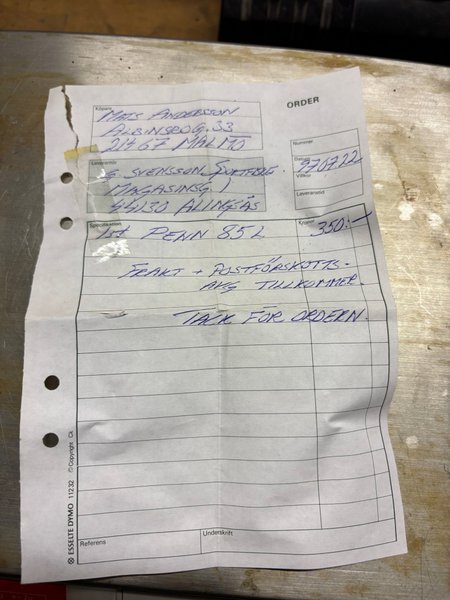 ORDER
Köpare
MATS ANDERSSON
ALBINSROG. 33
21467 MALMÖ
Nummer
Datum
970722
Villkor
Leveranstid
Leverantör
G. SVENSSON SPORTFISKE
MAGASINSG. 1
44130 ALINGSÅS
Specifikation
Kronor
1st PENN 85L
350:-
FRAKT + POSTFÖRSKOTTS-
AVG TILLKOMMER.
TACK FÖR ORDERN.
Referens
Underskrift
ESSELTE DYMO 11232 © Copyright